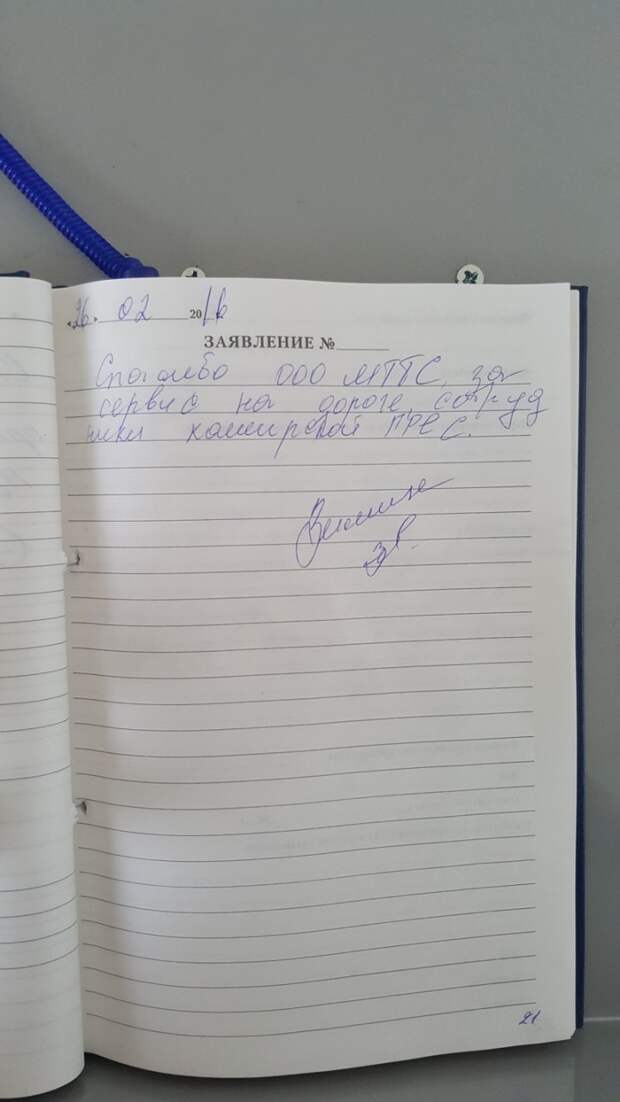 «26» 02 2016
ЗАЯВЛЕНИЕ №
Спасибо ООО МТТС, за
сервис на дороге, сотруд
ники каширской ПРС.
21